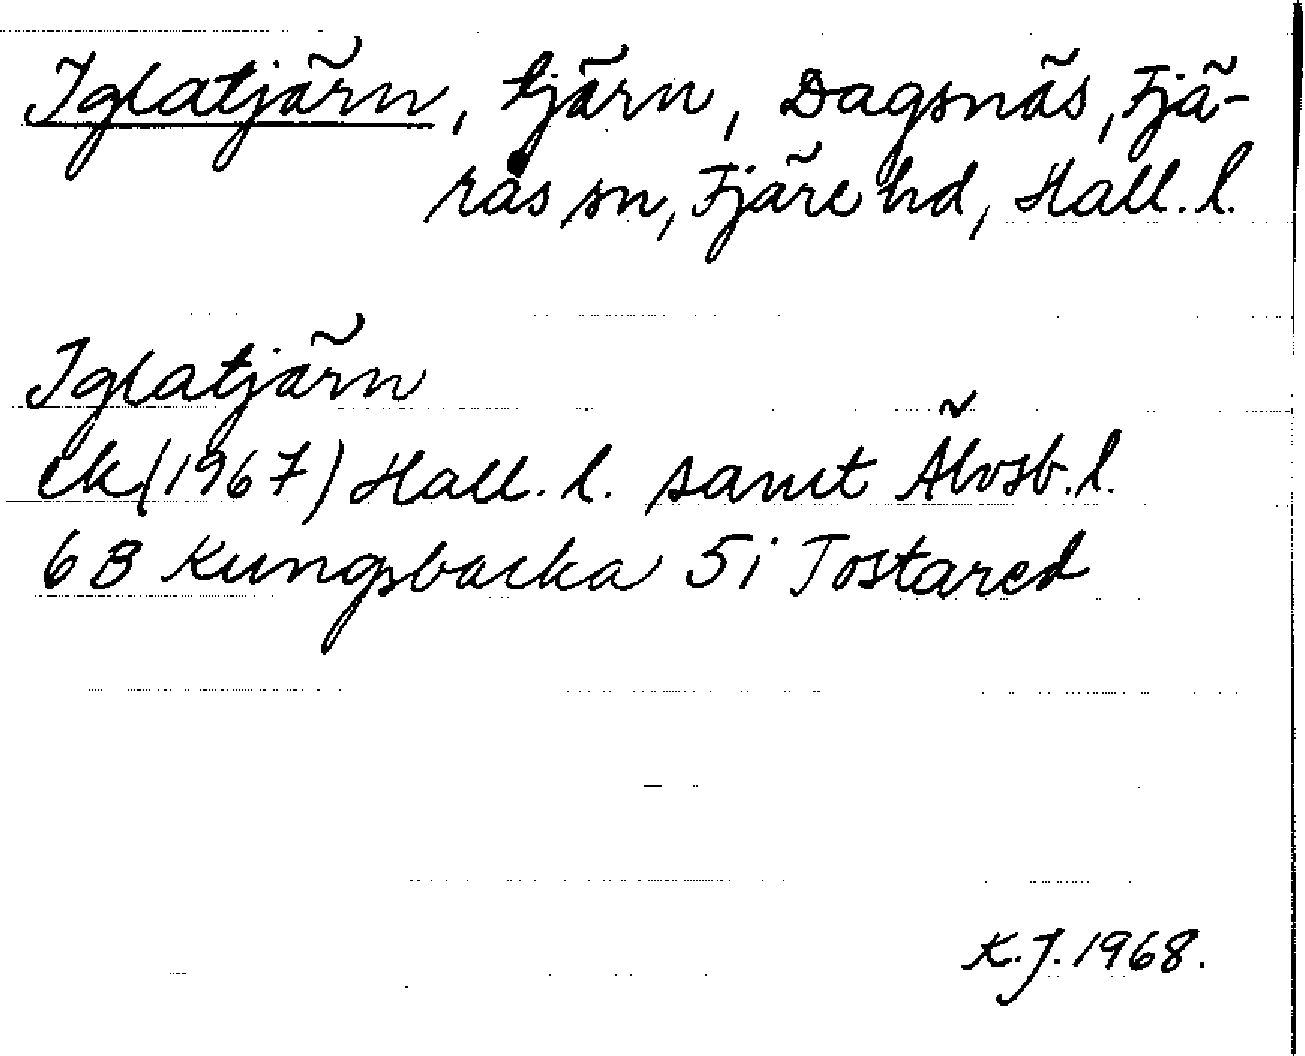 Iglatjärn, tjärn, Dagsnäs, Fjä-
rås sn, Fjäre hd, Hall. l.
Iglatjärn
ek (1967) Hall. l. samt Älvsb. l.
6B Kungsbacka 5i Tostared
K.J. 1968.